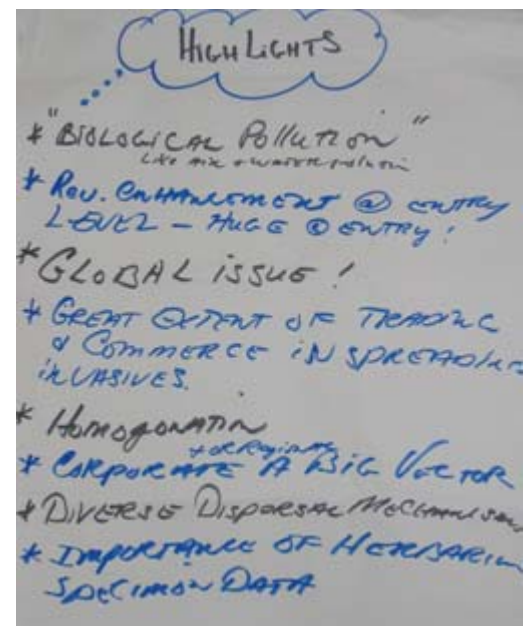 HIGHLIGHTS
* "BIOLOGICAL POllutION"
LIKE AIR + WATER POLLUTION
* REV. ENHANCEMENT @ ENTRY
LEVEL – HUGE @ ENTRY!
* GLOBAL ISSUE!
* GREAT EXTENT OF TRADING
& COMMERCE IN SPREADING
INVASIVES.
* HOMOGONATION
+ OR REGIONAL
* CORPORATE A BIG VECTOR
* DIVERSE DISPERSAL MECHANISMS
* IMPORTANCE OF HERBARIUM
SPECIMON DATA